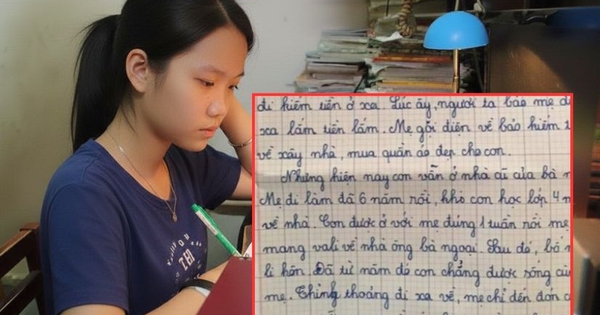 đi kiếm tiền ở xa. Lúc ấy, người ta bảo mẹ đi
xa lắm tiền lắm. Mẹ gọi điện về bảo kiếm t
về xây nhà, mua quần áo đẹp cho con.
Nhưng hiện nay con vẫn ở nhà cũ của bà n
Mẹ đi làm đã 6 năm rồi, khi con học lớp 4 m
về nhà. Con được ở với mẹ đúng 1 tuần rồi mẹ
mang vali về nhà ông bà ngoại. Sau đó, bố m
li hôn. Đã từ năm đó con chẳng được sống cùn
mẹ. Thỉnh thoảng đi xa về, mẹ chỉ đến đón c